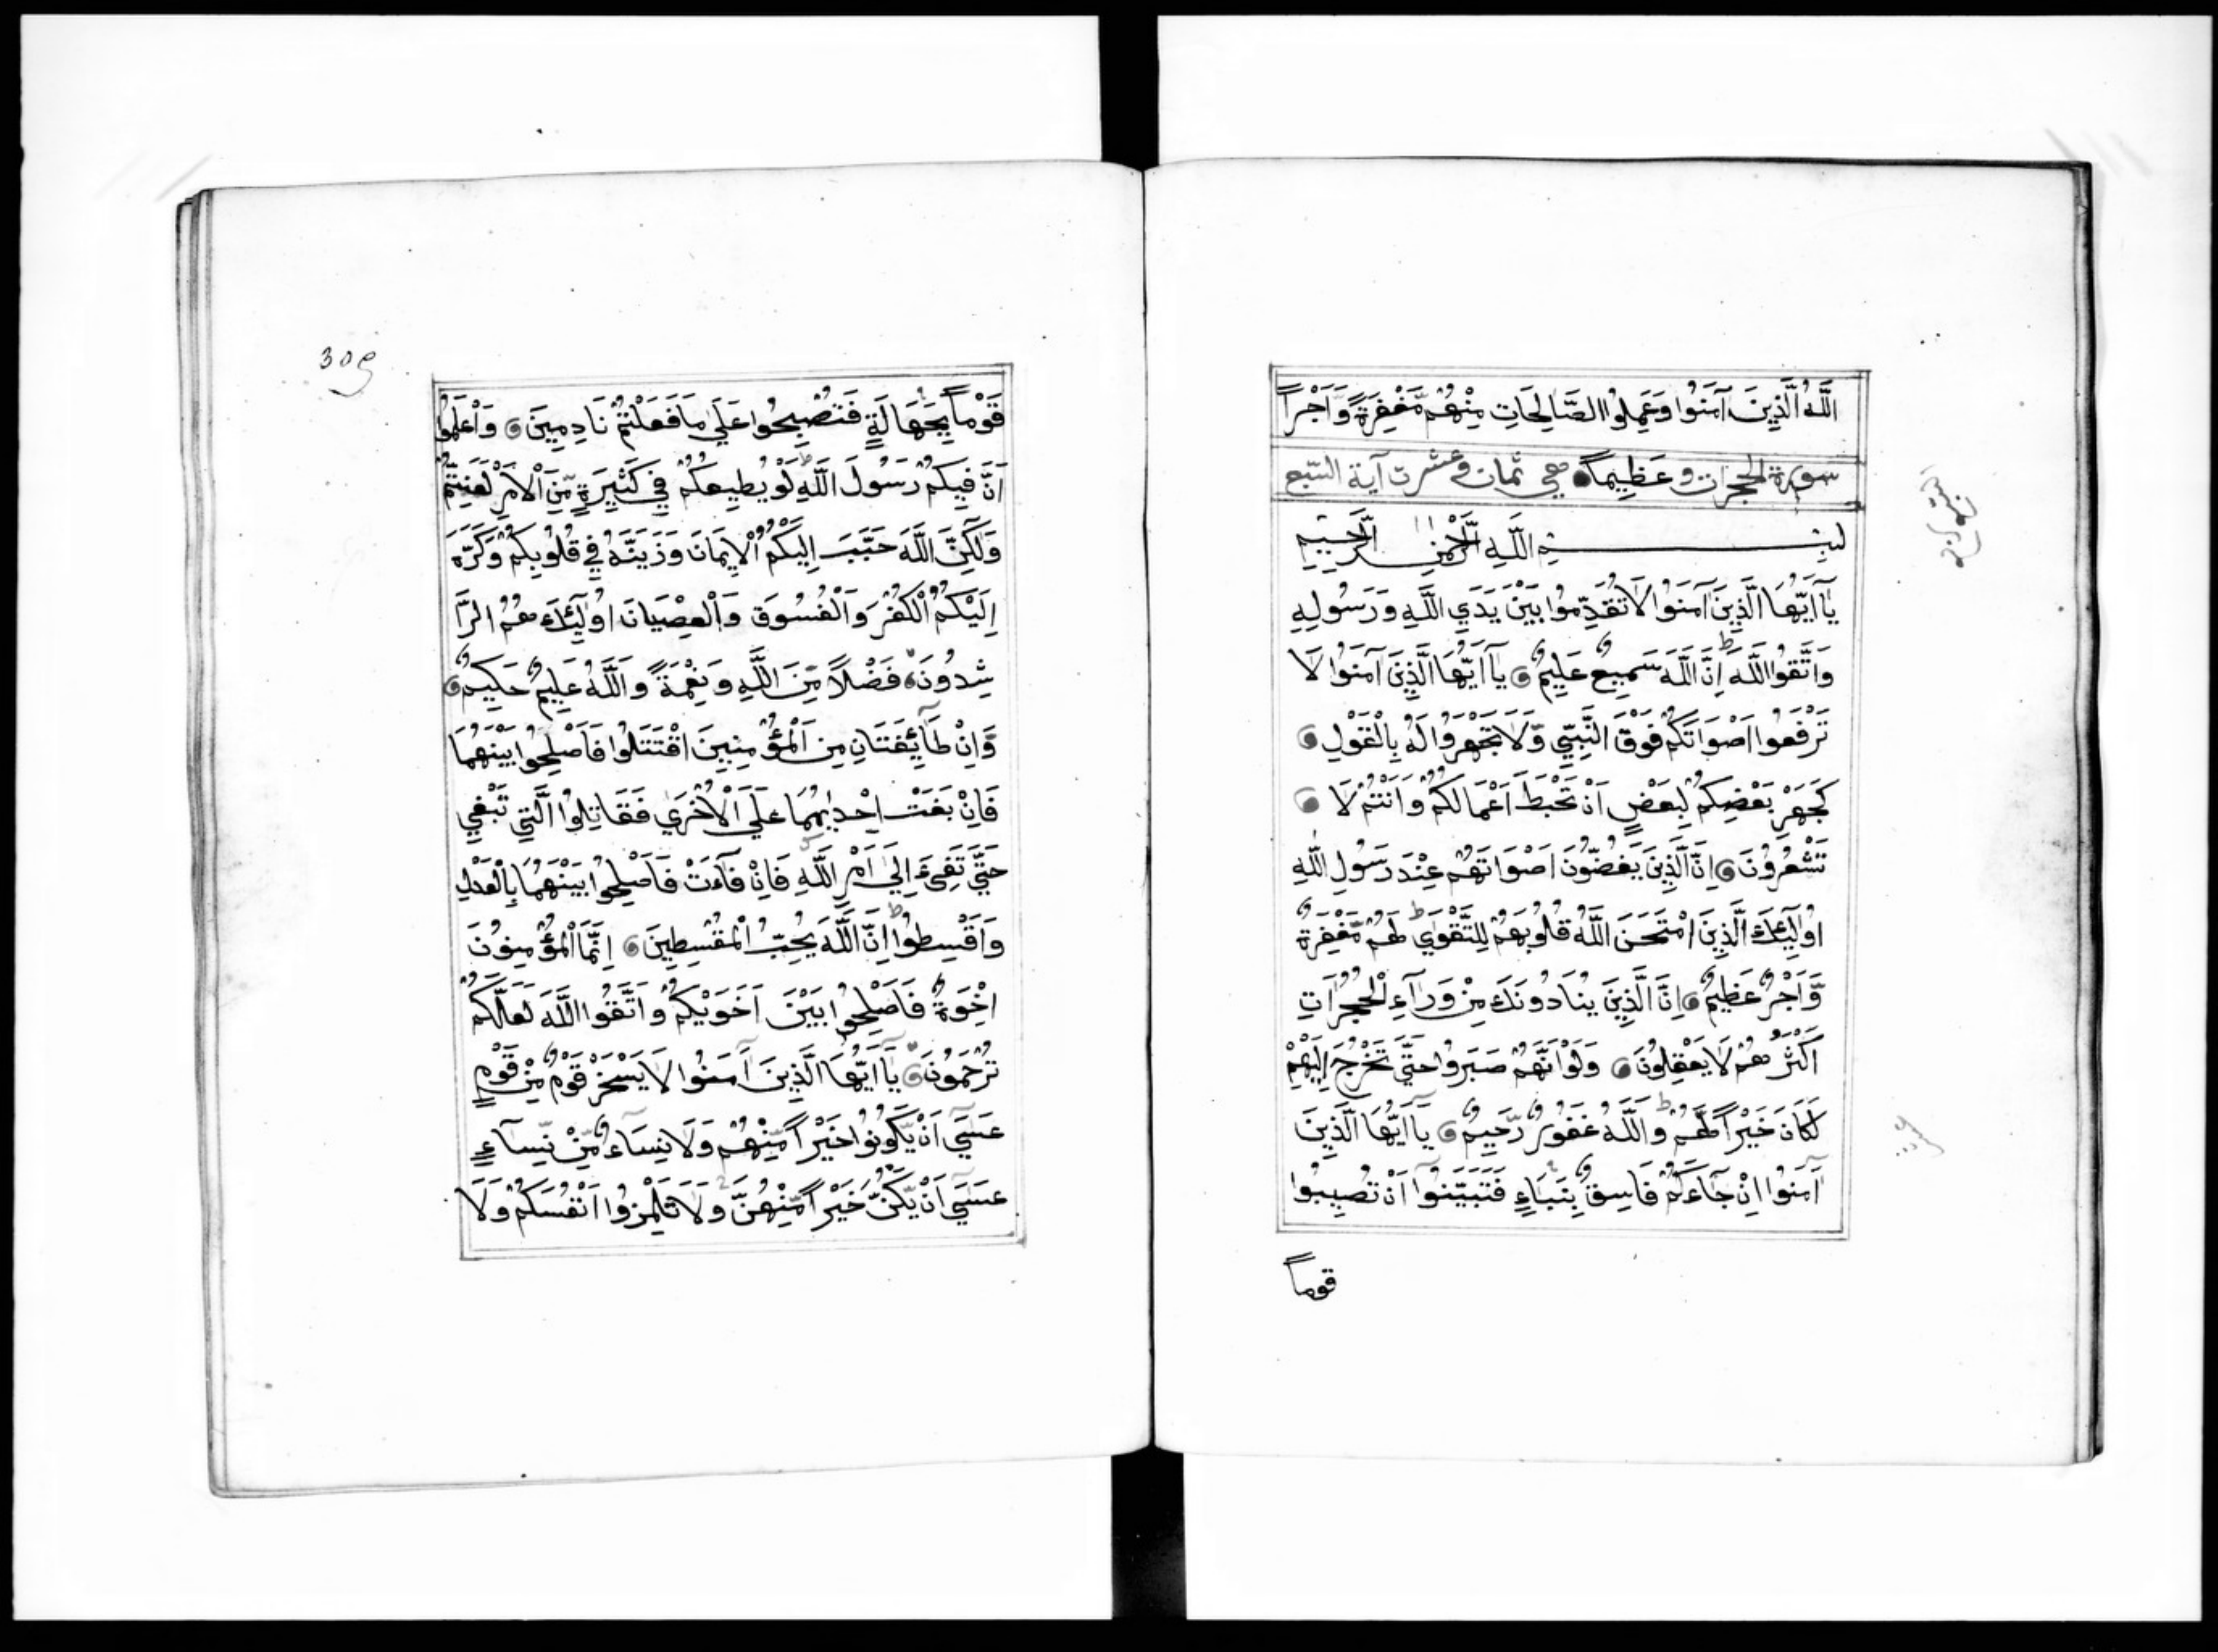 اَللّٰهُ الَّذِينَ آمَنُوا وَعَمِلُوا الصَّالِحَاتِ مِنْهُمْ مَّغْفِرَةً وَّاَجْراً
سورة الحجرات وعَظِيماً هي ثمان وعشرت آية السبع
بِسْمِ اللَّهِ الرَّحْمٰنِ الرَّحِيمِ
يَآ اَيُّهَا الَّذِينَ آمَنُوا لَا تُقَدِّمُوا بَيْنَ يَدَيِ اللَّهِ وَرَسُولِهِ
وَاتَّقُوا اللَّهَ ط اِنَّ اللَّهَ سَمِيعٌ عَلِيمٌ يَآ اَيُّهَا الَّذِينَ آمَنُوا لَا
تَرْفَعُوا اَصْوَاتَكُمْ فَوْقَ النَّبِيِّ وَلَا تَجْهَرُوا لَهُ بِالْقَوْلِ
كَجَهْرِ بَعْضِكُمْ لِبَعْضٍ اَنْ تَحْبَطَ اَعْمَالُكُمْ وَاَنْتُمْ لَا
تَشْعُرُونَ اِنَّ الَّذِينَ يَغُضُّونَ اَصْوَاتَهُمْ عِنْدَ رَسُولِ اللَّهِ
اُولٰٓئِكَ الَّذِينَ امْتَحَنَ اللَّهُ قُلُوبَهُمْ لِلتَّقْوَي ط لَهُمْ مَّغْفِرَةٌ
وَّاَجْرٌ عَظِيمٌ اِنَّ الَّذِينَ يُنَادُونَكَ مِنْ وَرَآءِ الْحُجُرَاتِ
اَكْثَرُهُمْ لَا يَعْقِلُونَ وَلَوْ اَنَّهُمْ صَبَرُوا حَتَّي تَخْرُجَ اِلَيْهِمْ
لَكَانَ خَيْراً لَّهُمْ ط وَاللَّهُ غَفُورٌ رَّحِيمٌ يَآ اَيُّهَا الَّذِينَ
آمَنُوا اِنْ جَآءَكُمْ فَاسِقٌ بِنَبَاءٍ فَتَبَيَّنُوآ اَنْ تُصِيبُوا
قوماً
309
قَوْماً بِجَهَالَةٍ فَتُصْبِحُوا عَلَي مَا فَعَلْتُمْ نَادِمِينَ وَاعْلَمُوا
اَنَّ فِيكُمْ رَسُولَ اللَّهِ ط لَوْ يُطِيعُكُمْ فِي كَثِيرَةٍ مِّنَ الْاَمْرِ لَعَنِتُّمْ
وَلٰكِنَّ اللَّهَ حَبَّبَ اِلَيْكُمُ الْاِيمَانَ وَزَيَّنَهُ فِي قُلُوبِكُمْ وَكَرَّهَ
اِلَيْكُمُ الْكُفْرَ وَالْفُسُوقَ وَالْعِصْيَانَ اُولٰٓئِكَ هُمُ الرَّا
شِدُونَ فَضْلاً مِّنَ اللَّهِ وَنِعْمَةً وَاللَّهُ عَلِيمٌ حَكِيمٌ
وَاِنْ طَآئِفَتَانِ مِنَ الْمُؤْمِنِينَ اقْتَتَلُوا فَاَصْلِحُوا بَيْنَهُمَا
فَاِنْ بَغَتْ اِحْدٰيهُمَا عَلَي الْاُخْرَي فَقَاتِلُوا الَّتِي تَبْغِي
حَتَّي تَفِيءَ اِلَي اَمْرِ اللَّهِ فَاِنْ فَآءَتْ فَاَصْلِحُوا بَيْنَهُمَا بِالْعَدْلِ
وَاَقْسِطُوا ط اِنَّ اللَّهَ يُحِبُّ الْمُقْسِطِينَ اِنَّمَا الْمُؤْمِنُونَ
اِخْوَةٌ فَاَصْلِحُوا بَيْنَ اَخَوَيْكُمْ وَاتَّقُوا اللَّهَ لَعَلَّكُمْ
تُرْحَمُونَ يَآ اَيُّهَا الَّذِينَ آمَنُوا لَا يَسْخَرْ قَوْمٌ مِّنْ قَوْمٍ
عَسَي اَنْ يَّكُونُوا خَيْراً مِّنْهُمْ وَلَا نِسَاءٌ مِّنْ نِّسَآءٍ
عَسَي اَنْ يَّكُنَّ خَيْراً مِّنْهُنَّ وَلَا تَلْمِزُوا اَنْفُسَكُمْ وَلَا